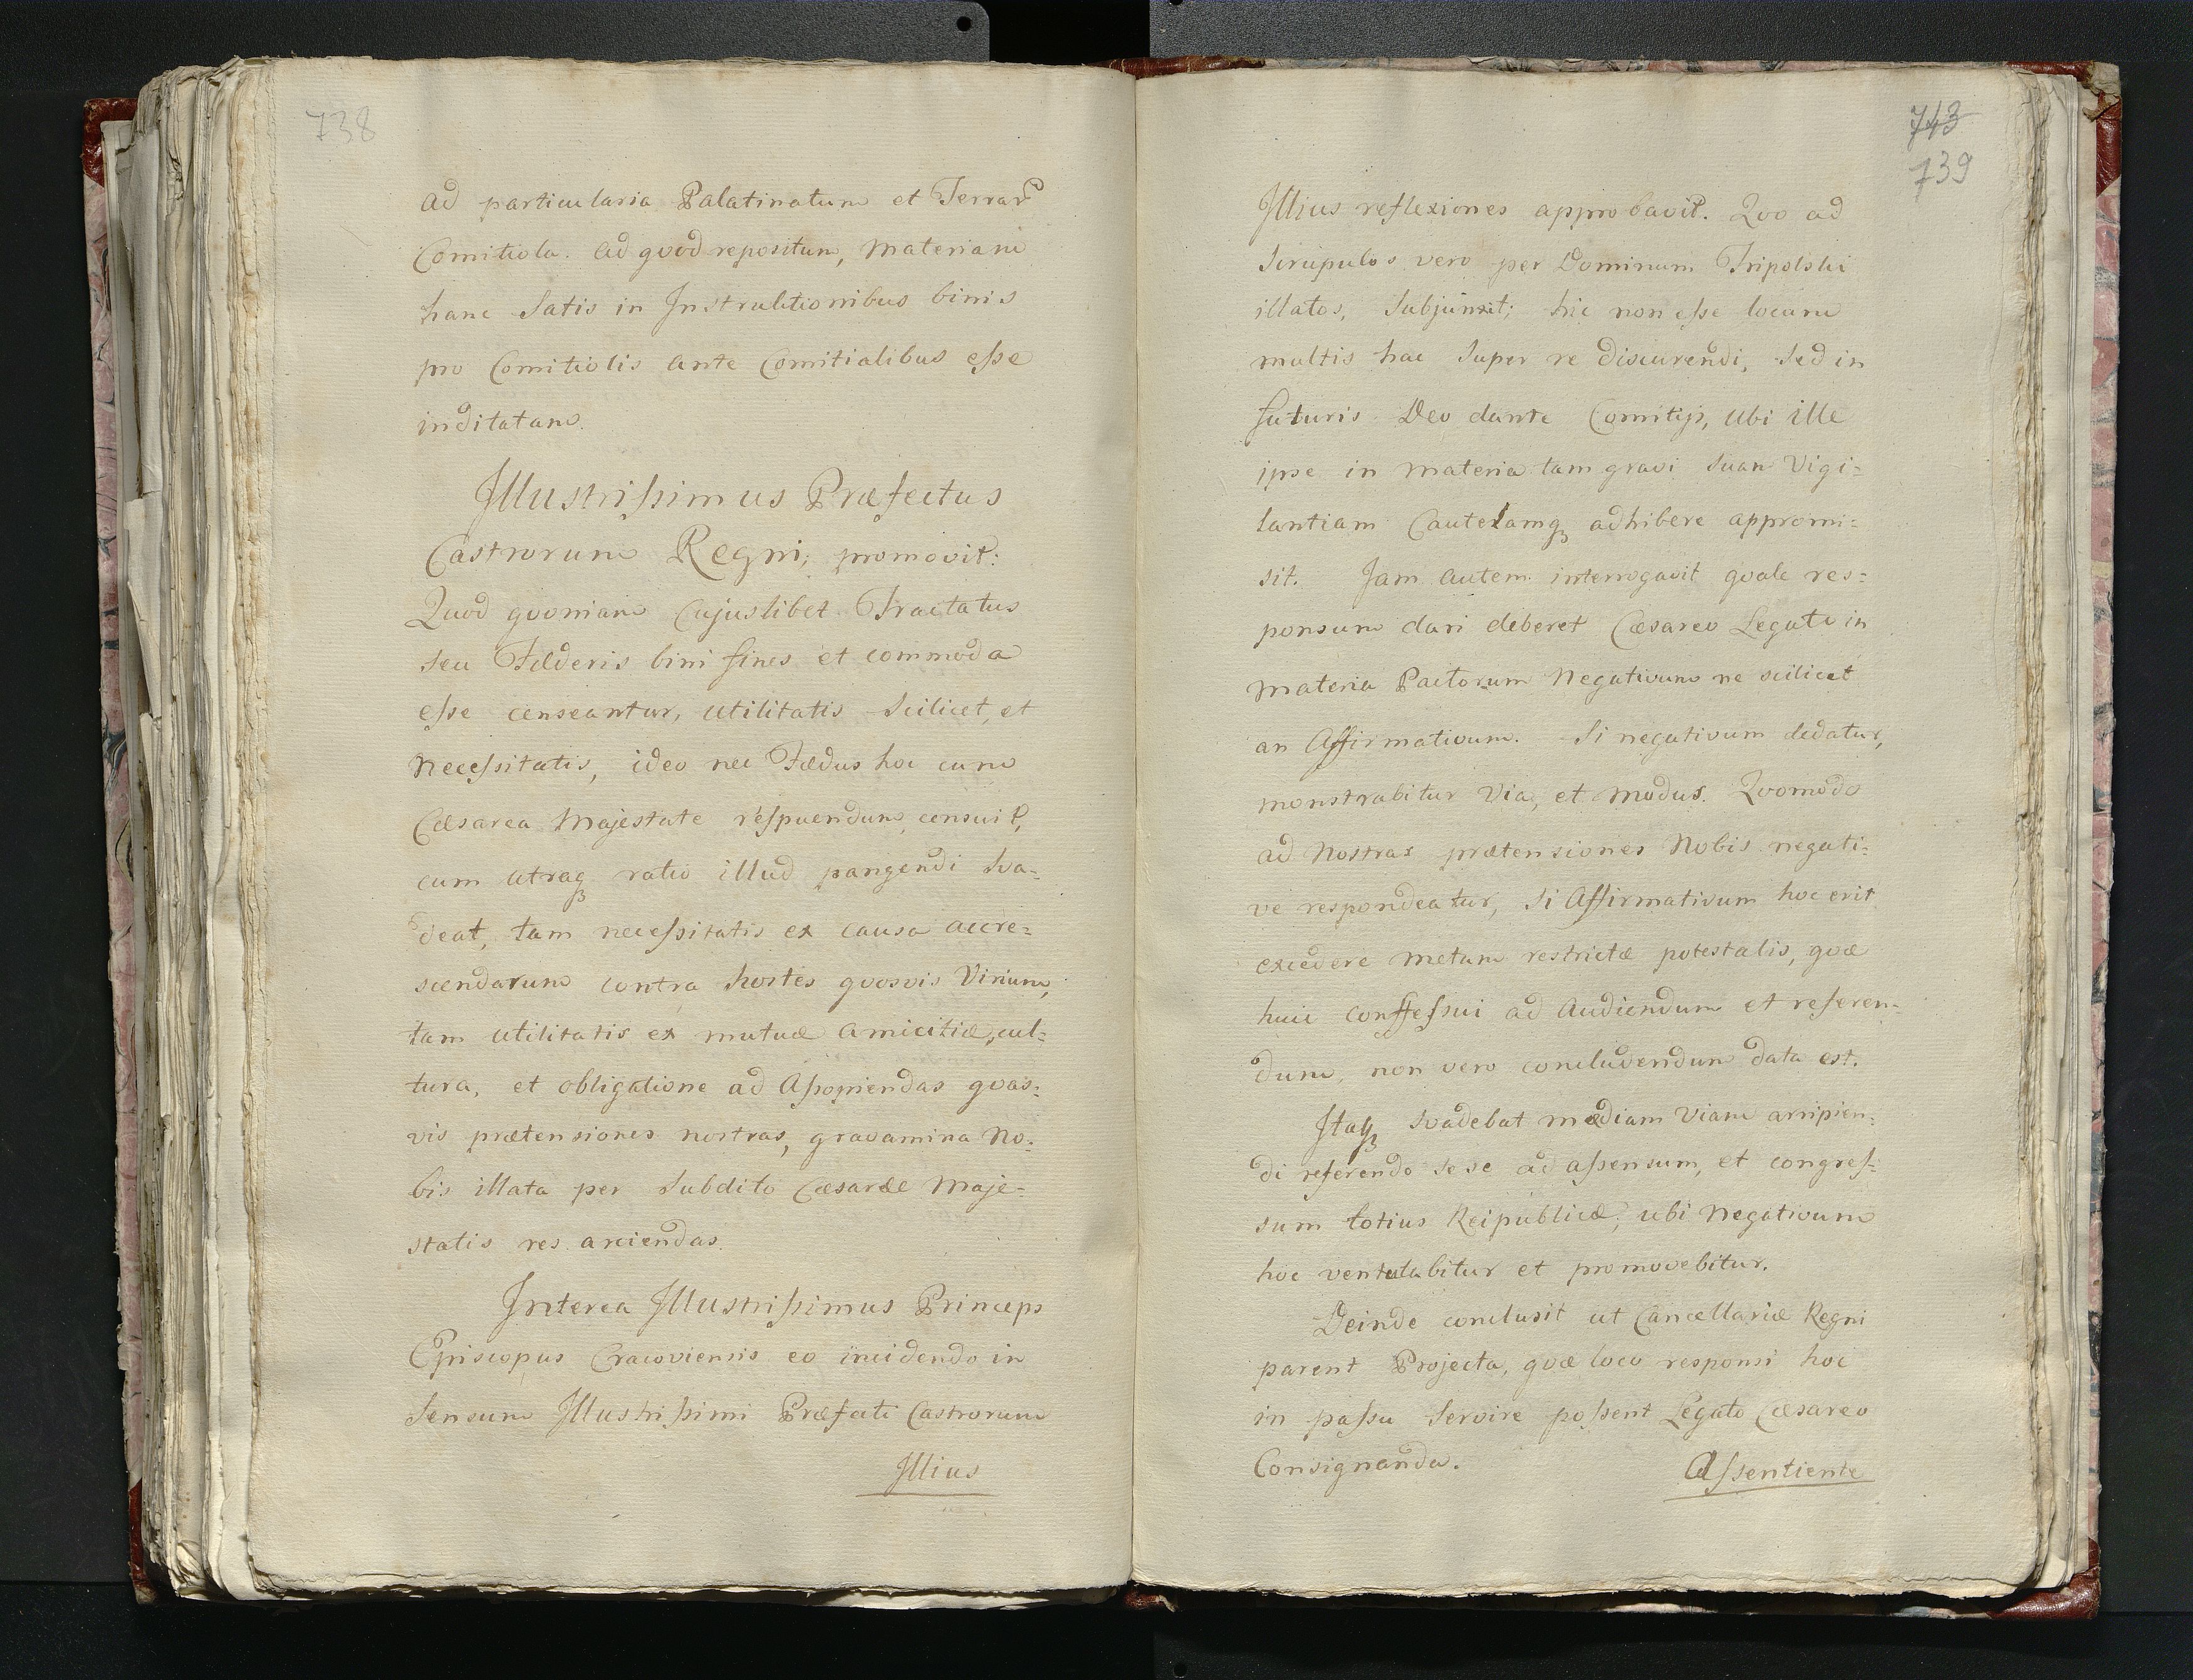 738
ad particularia Palatinatum et Terrar
Comitiola. ad qvod repositum, materiam
hanc Satis in Instructionibus binis
pro Comitiolis ante Comitialibus esse
inditatam.
Illustrissimus Præfectus
Castrorum Regni, promovit:
Quod qvoniam Cujuslibet Tractatus
seu Fæderis bini fines et commoda
esse censeantur, utilitatis Scilicet, et
Necessitatis, ideo nec Fædus hoc cum
Cæsarea Majestate respuendum, censuit,
cum utraq ratio illud pangendi Sva-
deat, tam necessitatis ex causa accre-
scendarum contra hostes qvosvis Virium,
tam utilitatis ex mutuæ amicitiæ, cul-
tura, et obligatione ad assopiendas qvas-
vis prætensiones nostras, gravamina No-
bis illata per Subdito Cæsareæ Maje-
statis res arciendas.
Interea Illustrissimus Princeps
Episcopus Cracoviensis eo incidendo in
Sensum Illustrissimi Præfecti Castrorum
Illius
743
739
Illius reflexiones approbavit. Qvo ad
Scrupulos vero per Dominum Tripolski
illatos, Subjunxit; hic non esse locum
multis hac Super re discurendi, Sed in
futuris Deo dante Comitijs, ubi ille
ipse in materia tam gravi suam Vigi-
lantiam Cautelamq adhibere appromi-
sit. Jam autem interrogavit qvale res-
ponsum dari deberet Cæsareo Legato in
materia Pactorum Negativum ne scilicet
an Affirmativum. Si negativum dedatur,
monstrabitur Via, et modus. Qvomodo
ad Nostras prætensiones Nobis negati-
ve respondeatur, Si Affirmativum hoc erit
excedere metum restrictæ potestatis, qvæ
huic conssessui ad Audiendum et referen-
dum, non vero concludendum data est.
Itaq Svadebat mediam Viam arripien-
di referendo sese ad assensum, et congres-
sum totius Reipublicæ, ubi Negativum
hoc ventilabitur et promovebitur.
Deinde conclusit ut Cancellariæ Regni
parent Projecta, qvæ loco responsi hoc
in passu Servire possent Legato Cæsareo
Consignanda.
Assentiente